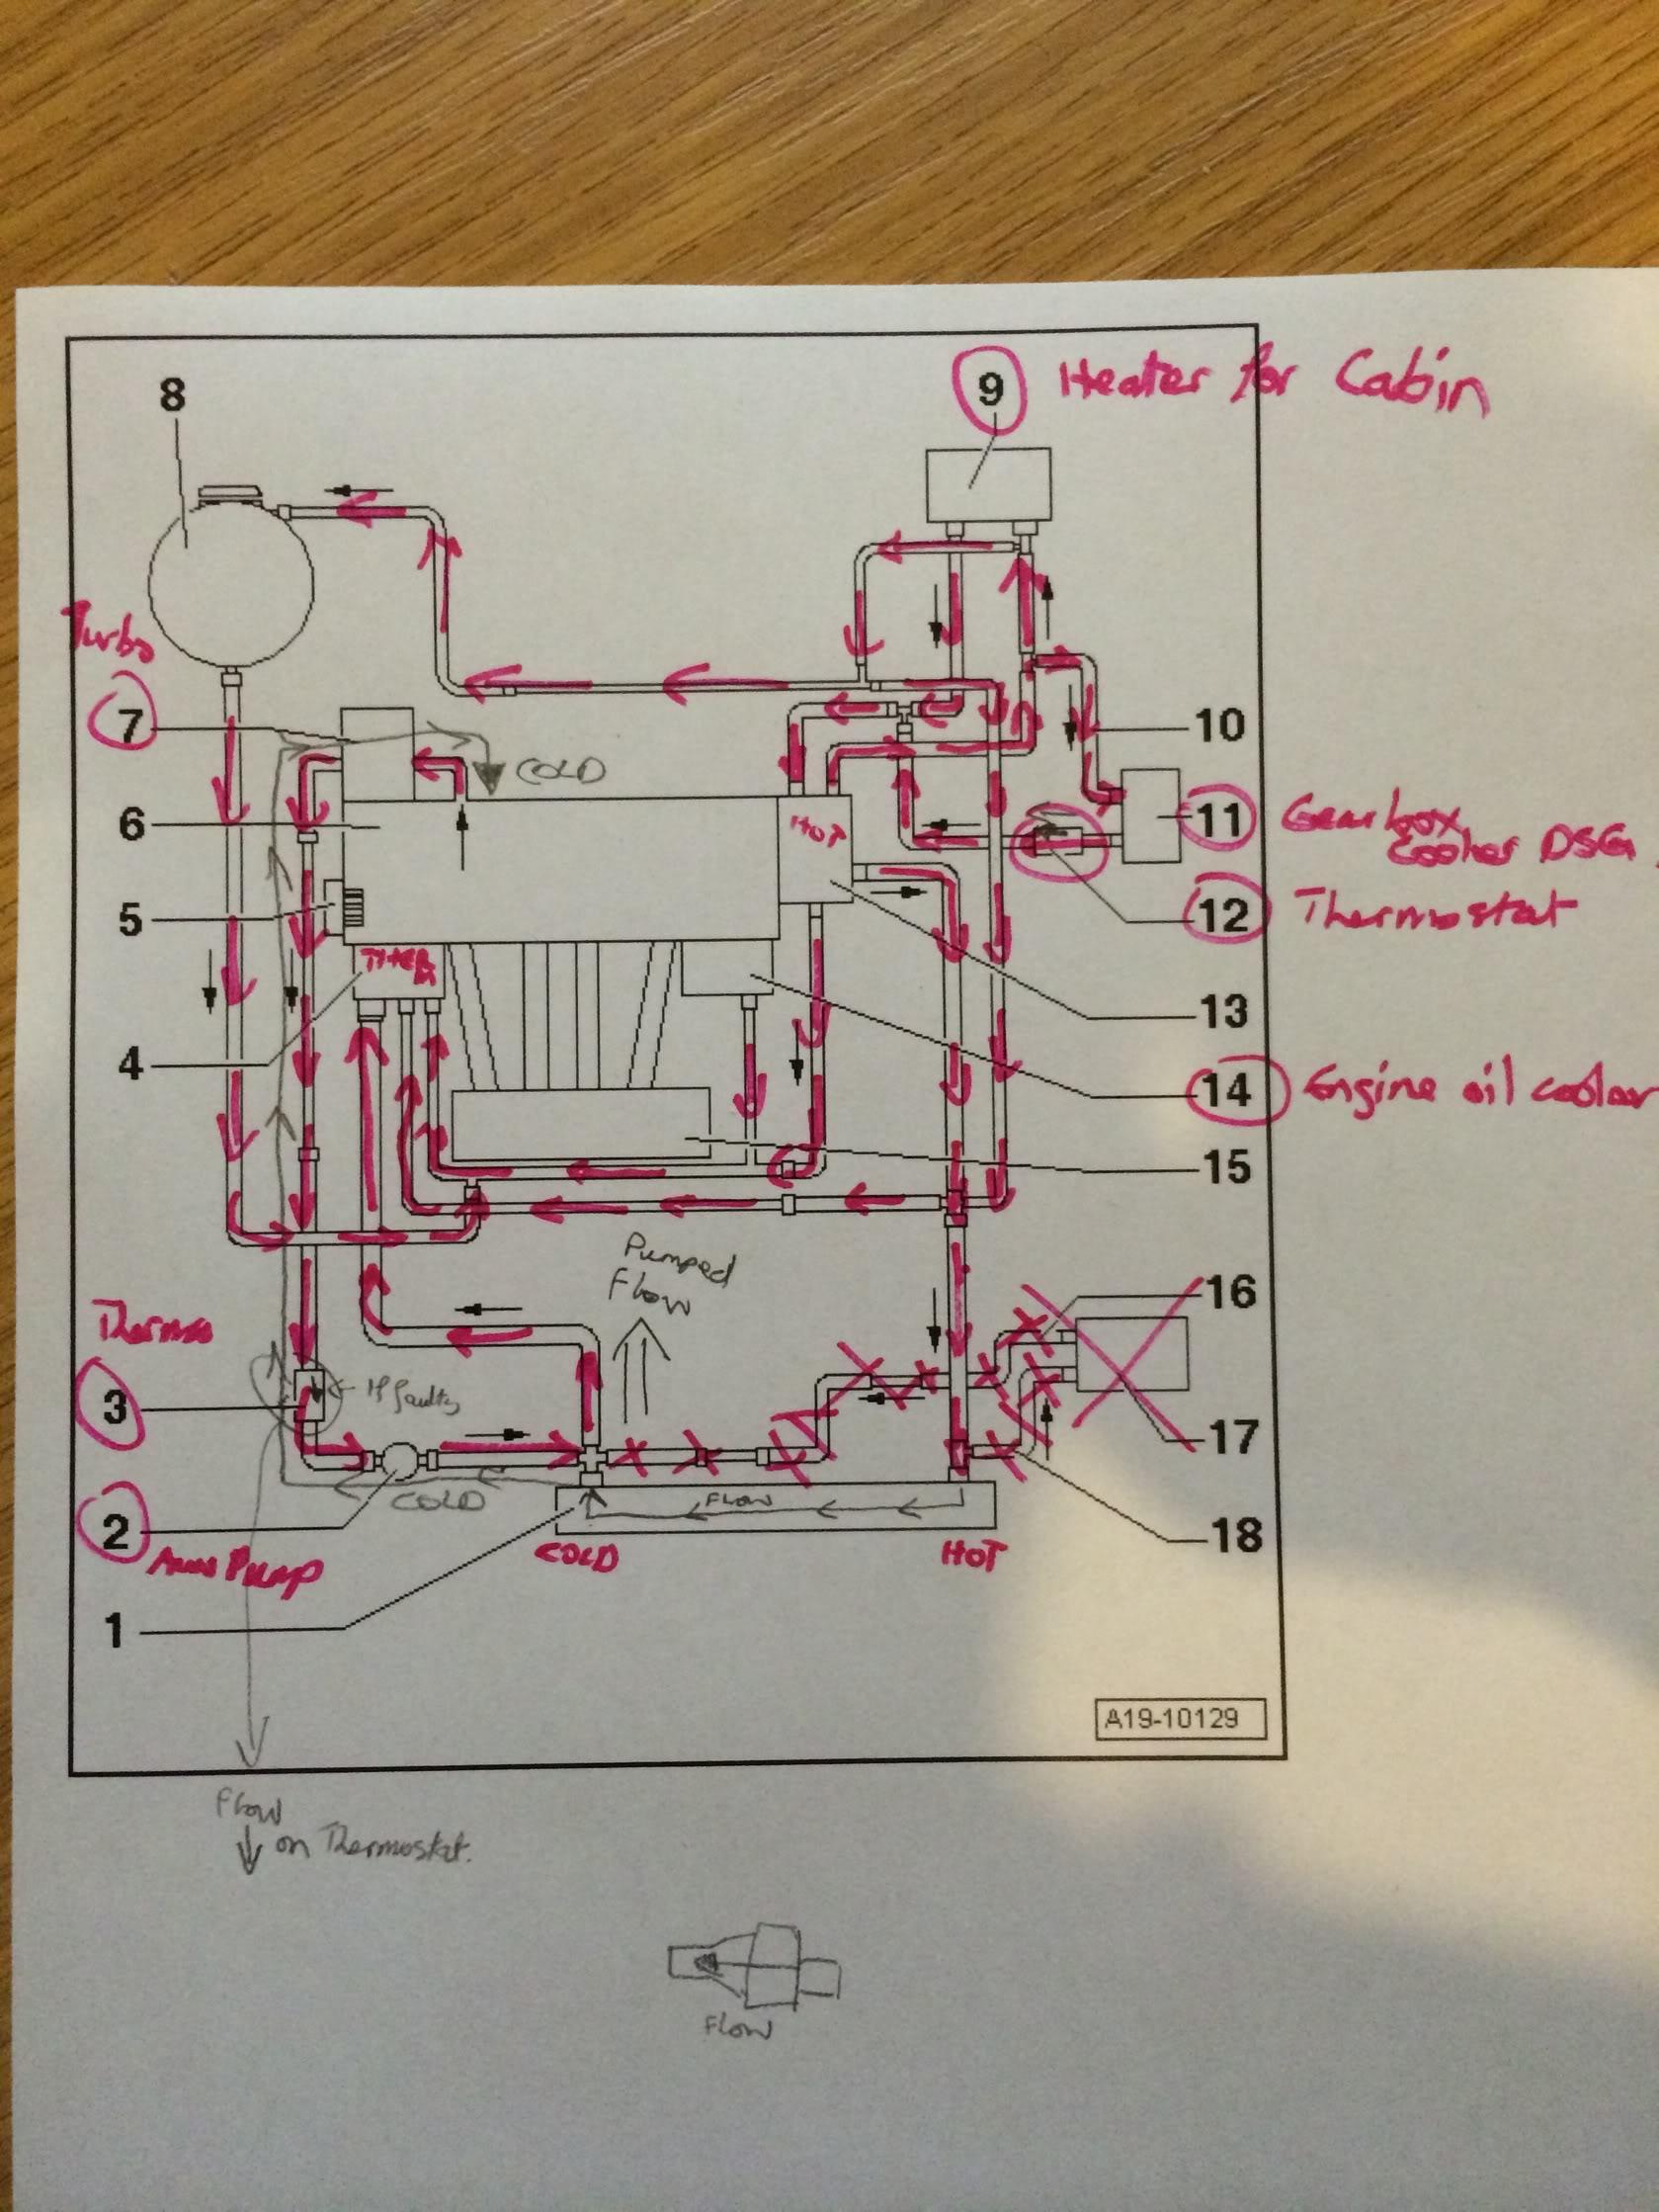 8
9 Heater for Cabin
Turbo
7
COLD
10
6
HOT
11 Gearbox
Cooler DSG
5
12 Thermostat
THERM
13
4
14 Engine oil cooler
15
Pumped
Flow
16
Thermo
3
If faulty
17
COLD
FLOW
2
18
COLD
HOT
Pump
1
A19-10129
Flow
on Thermostat.
Flow